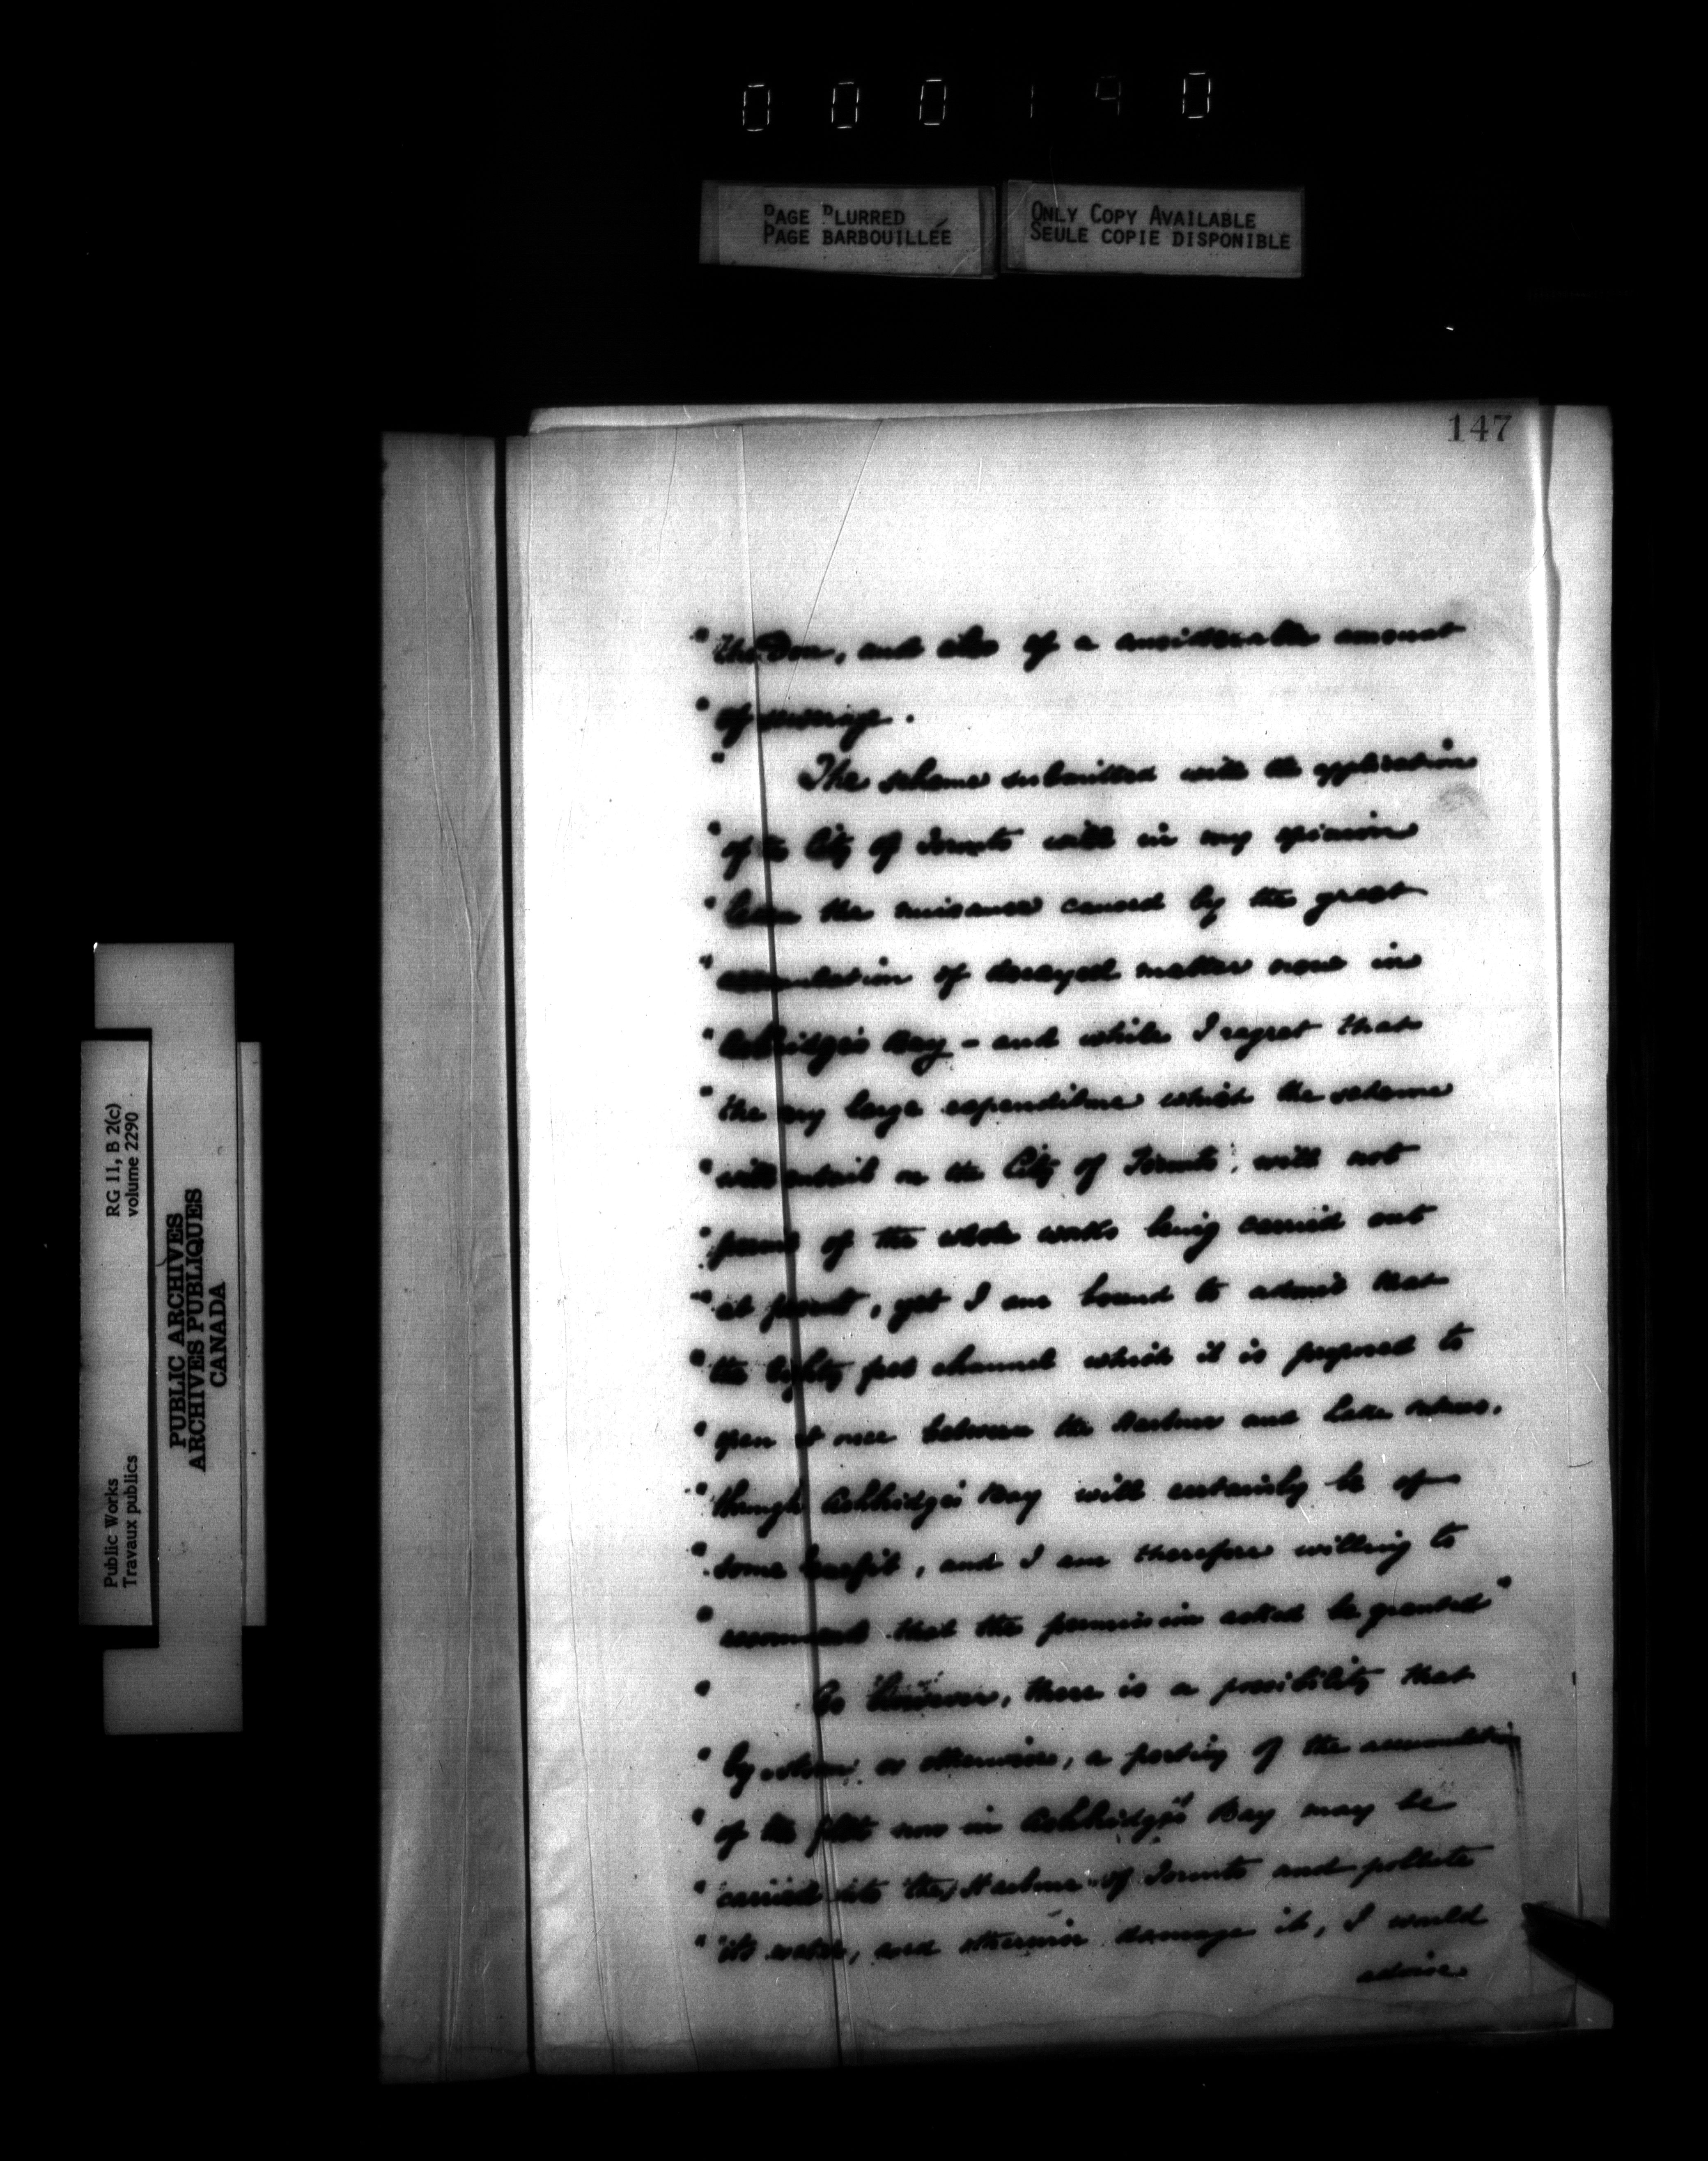 000190
PAGE BLURRED
PAGE BARBOUILLÉE
ONLY COPY AVAILABLE
SEULE COPIE DISPONIBLE
147
" the Don, and also of a considerable amount
" of sewerage.
" The scheme submitted with the application
" of the City of Toronto will in my opinion
" lessen the nuisance caused by the great
" accumulation of decayed matter now in
" Ashbridge's Bay - and while I regret that
" the very large expenditure which the scheme
" will entail on the City of Toronto, will not
" permit of the whole works being carried out
" at present, yet I am bound to admit that
" the eighty feet channel which it is proposed to
" open at once between the Harbour and Lake
" through Ashbridge's Bay will certainly be of
" some benefit, and I am therefore willing to
" recommend that the permission asked be granted"
" As however, there is a possibility that
" by storm or otherwise, a portion of the accumulation
" of the filth now in Ashbridge's Bay may be
" carried into the Harbour of Toronto and pollute
" its water, and otherwise damage it, I would
advise
RG 11, B 2(c)
volume 2290
PUBLIC ARCHIVES
ARCHIVES PUBLIQUES
CANADA
Public Works
Travaux publics